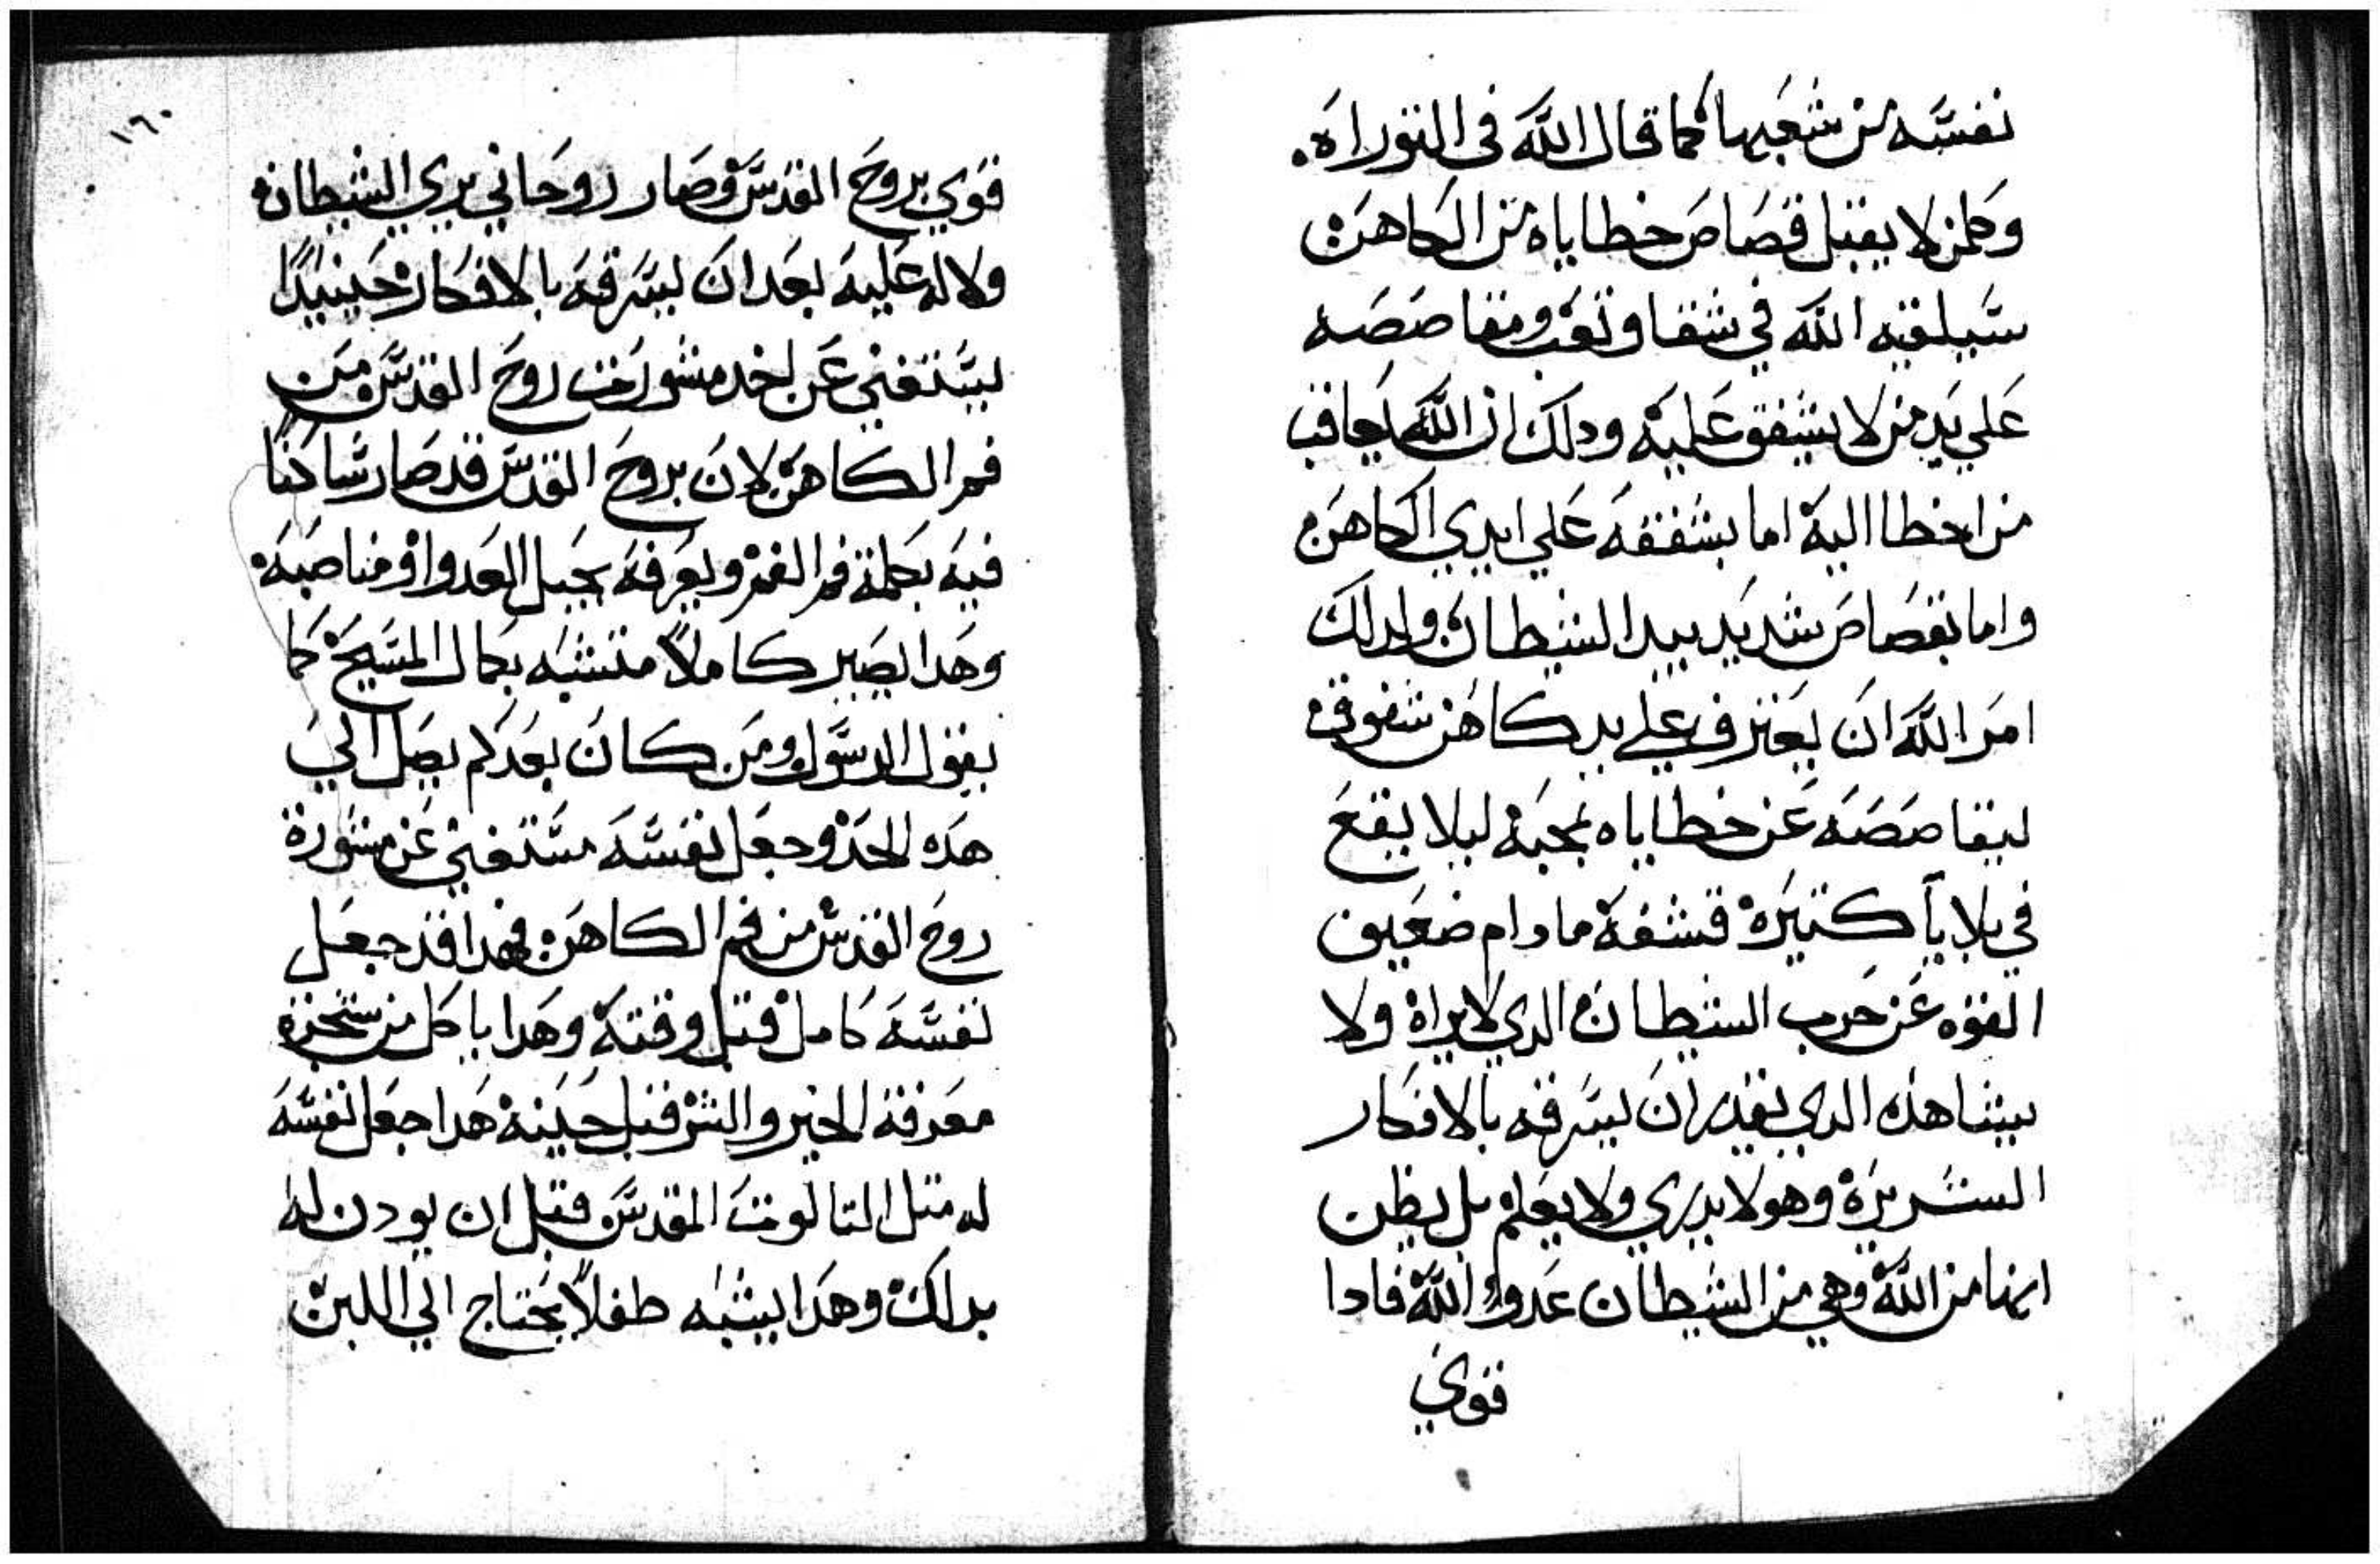 نفسه من شعبها كما قال الله في التوراه.
وكلمن لا يقبل قصاص خطاياه من الكاهن
سيلقيه الله في شقا وتعب ومقاصصه
علي يد من لا يشفق عليه ودلك ان الله يعاقب
من اخطا اليه اما بشفقه علي ايدي الكاهن
واما بقصاص شديد بيد الشيطان ولدلك
امر الله ان يعترف علي يد كاهن شفوق
ليقاصصه عن خطاياه بمحبه ليلا يقع
في بلايا كتيره قشفه مادام ضعيف
القوه عن حرب الشيطان الدي لا يراه ولا
يشاهده الدي يقدر ان يسرقه بالافكار
الشريره وهو لا يدري ولا يعلم بل يظن
انها من الله وهي من الشيطان عدو الله فادا
قوي
١٦٠
قوي بروح القدس وصار روحاني يري الشيطان
ولا له عليه بعد ان يسرقه بالافكار حينيدا
يستغني عن اخد مشورت روح القدس من
فم الكاهن لان بروح القدس قد صار ساكنا
فيه يكلمة فم الفم ويعرفه بحيل العدو او مناصبه
وهدا يصير كاملا متشبه بكمال المسيح كما
يقول الرسول ومن كان بعد لم يصل الي
هده الحد وجعل نفسه مستغني عن مشورة
روح القدس من فم الكاهن فهدا قد جعل
نفسه كامل قبل وقته وهدا ياكل من شجرة
معرفة الخير والشر قبل حينه هدا جعل نفسه
له متل التالوت المقدس قبل ان يودن له
بدلك وهدا يشبه طفلا يحتاج الي اللبن